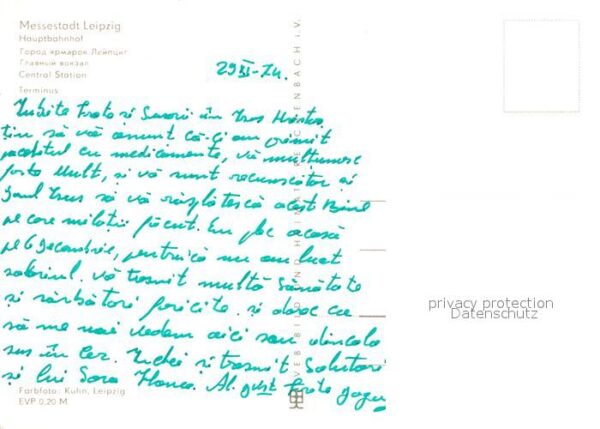 Messestadt Leipzig
Hauptbahnhof
Город ярмарок Лейпциг
Главный вокзал
Central Station
Terminus
29 XI-74.
Iubite frate și Surori în Isus Hristos,
țin să vă anunț că-ți am primit
pachetul cu medicamente, vă mulțumesc
foarte mult, și vă sunt recunoscător și
Domnul Isus să vă răsplătească acest Bine
pe care mi l-ați făcut. Eu plec acasă
pe 6 decembrie, pentru că nu am luat
salariul. vă trasmit multă Sănătate
și sărbători fericite. și doresc ca
să ne mai vedem aici sau dincolo
sus în Cer. și trasmit Salutări
și lui Sora
frate
VEB BILD UND HEIMAT REICHENBACH i. V.
Farbfoto: Kuhn, Leipzig
EVP 0,20 M
privacy protection
Datenschutz